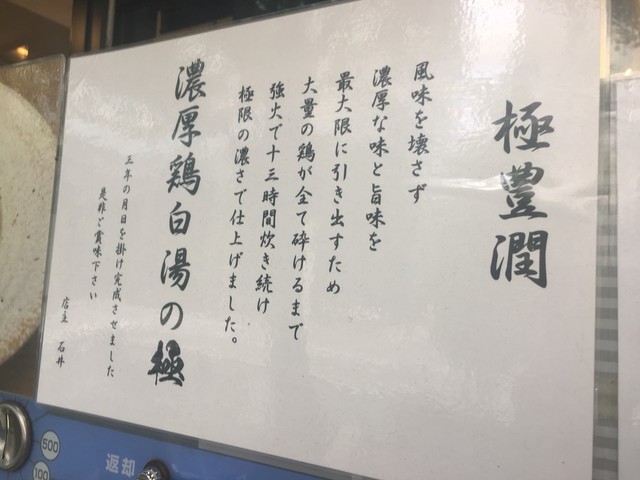 極豊潤
風味を壊さず
濃厚な味と旨味を
最大限に引き出すため
大量の鶏が全て砕けるまで
強火で十三時間炊き続け
極限の濃さで仕上げました。
濃厚鶏白湯の極
三年の月日を掛け完成させました
是非ご賞味下さい
店主 石井
500
100
返却